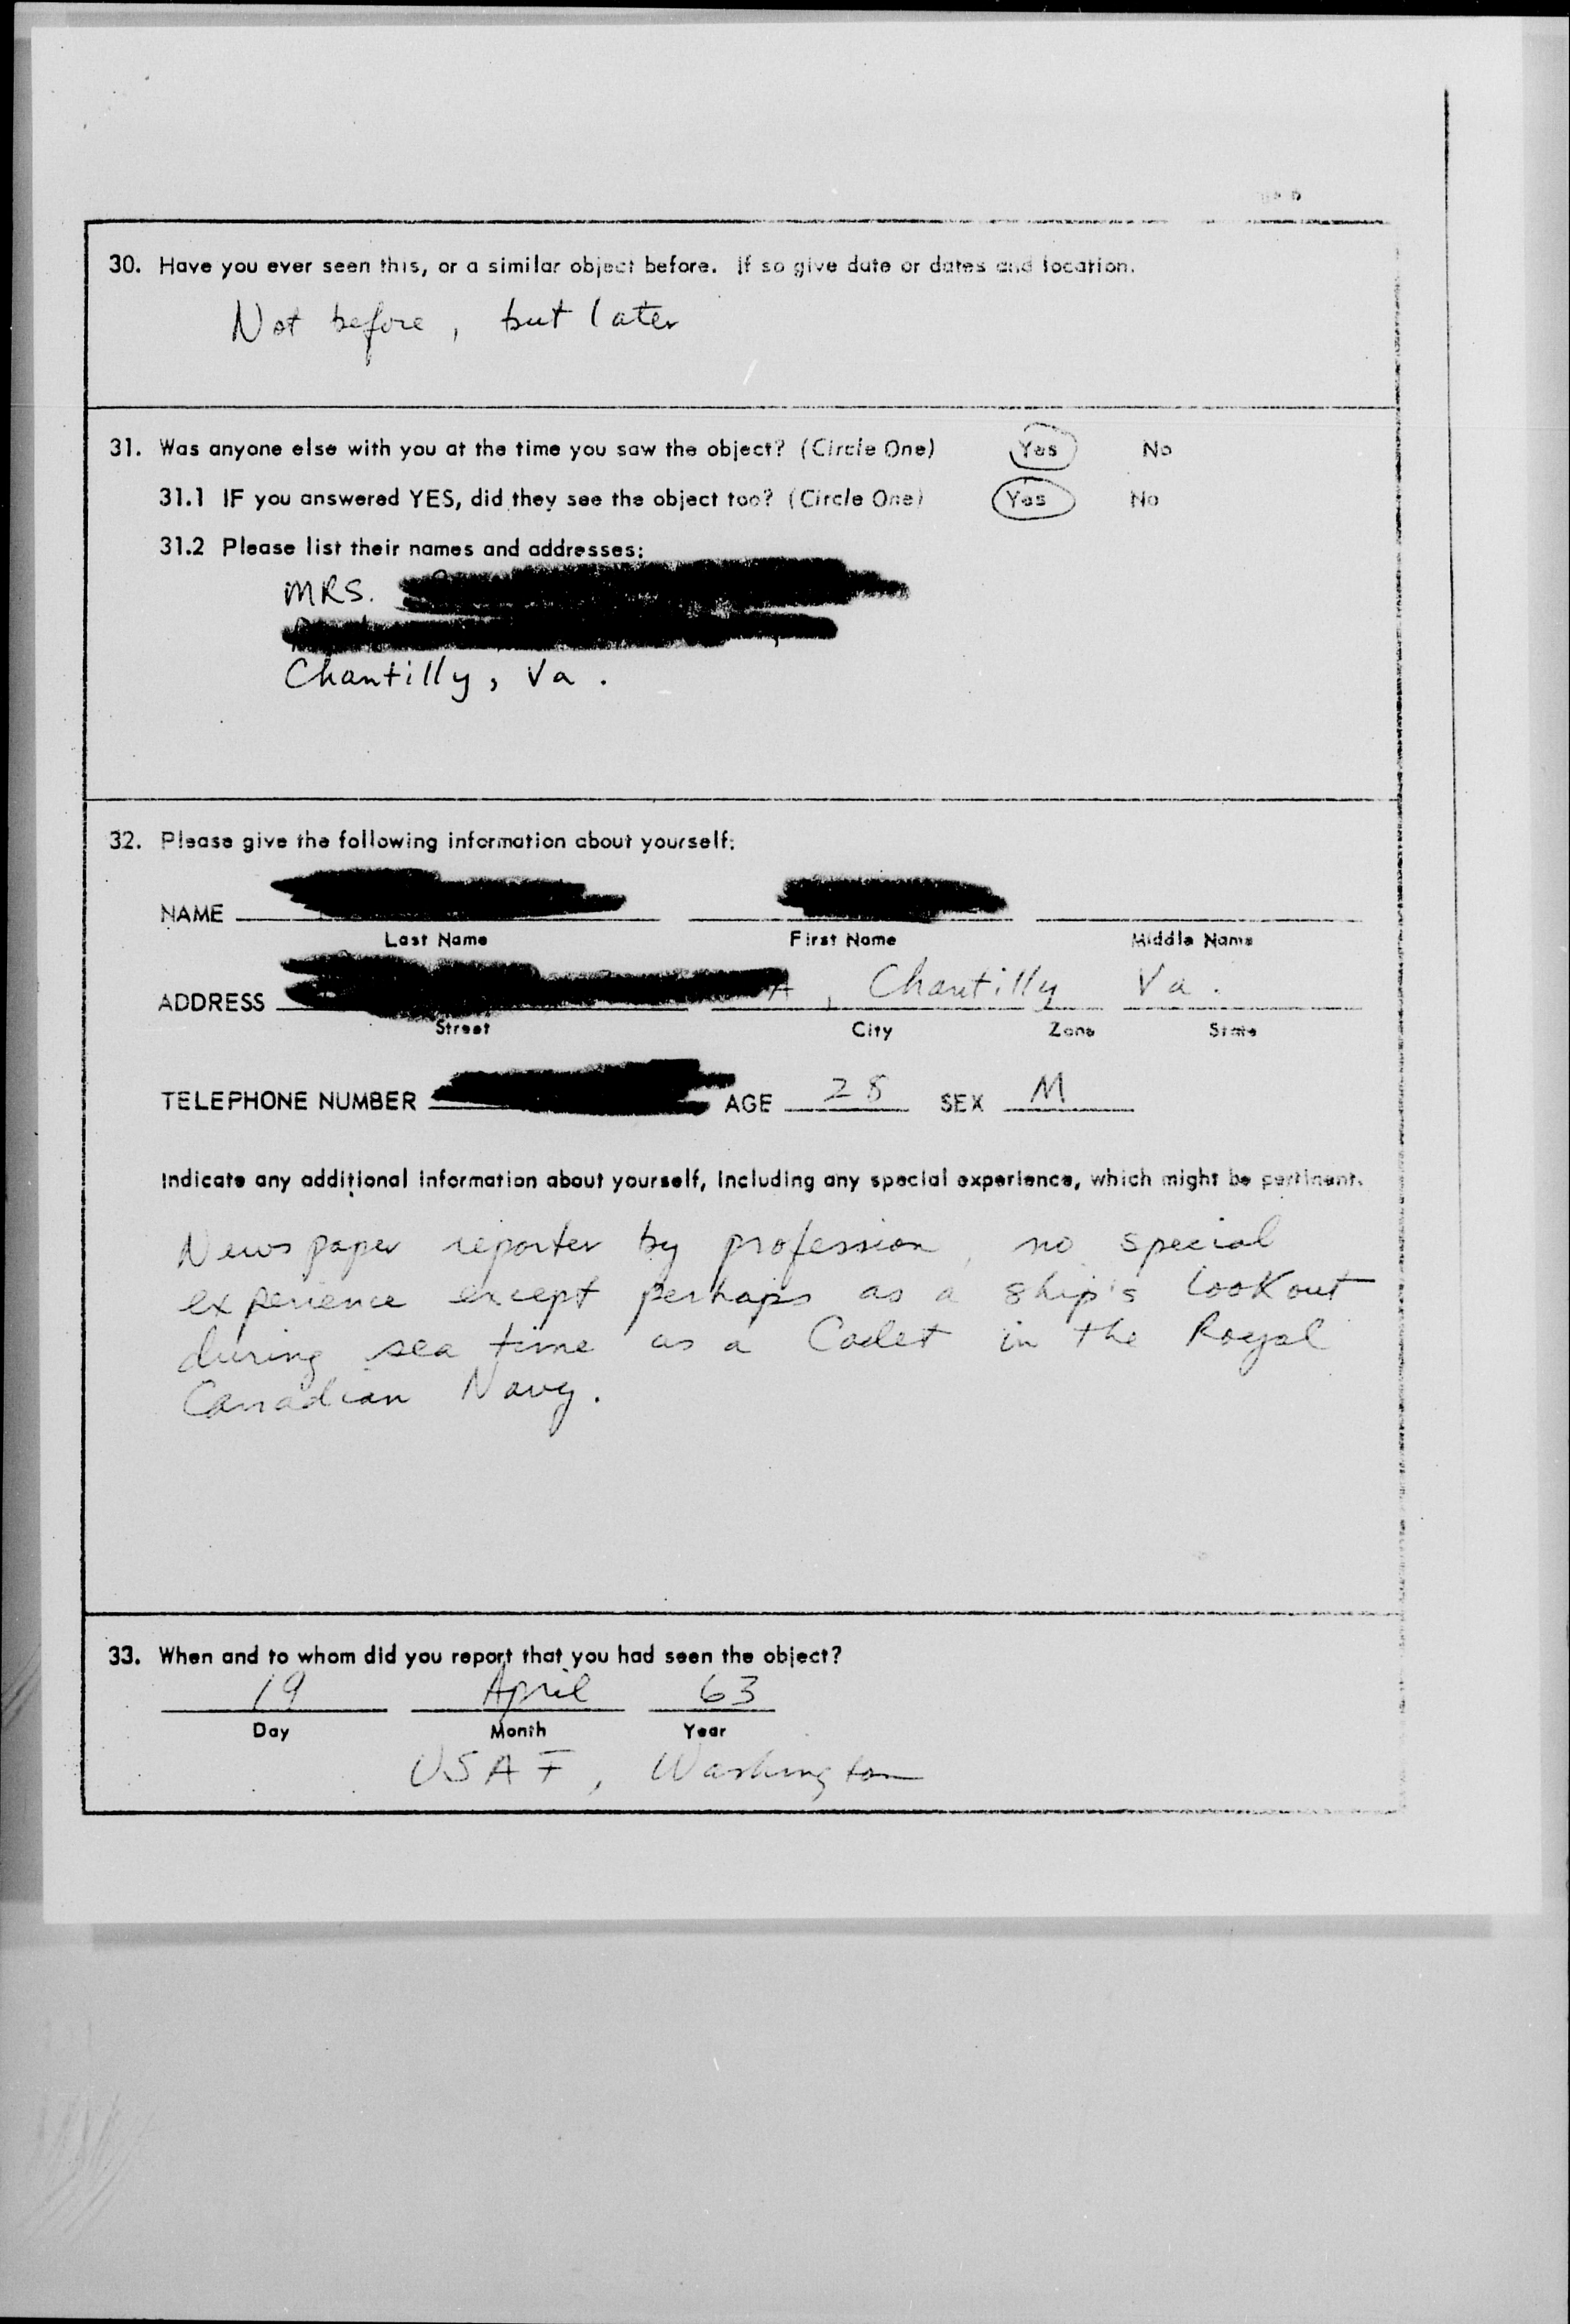 30. Have you ever seen this, or a similar object before. If so give date or dates and location.
Not before, but later
31. Was anyone else with you at the time you saw the object? (Circle One) Yes No
31.1 IF you answered YES, did they see the object too? (Circle One) Yes No
31.2 Please list their names and addresses:
MRS.
Chantilly, Va.
32. Please give the following information about yourself:
NAME
Last Name First Name Middle Name
ADDRESS , Chantilly Va.
Street City Zone State
TELEPHONE NUMBER AGE 28 SEX M
Indicate any additional information about yourself, including any special experience, which might be pertinent.
Newspaper reporter by profession, no special
experience except perhaps as a ship's lookout
during sea time as a Cadet in the Royal
Canadian Navy.
33. When and to whom did you report that you had seen the object?
19 April 63
Day Month Year
USAF, Washington